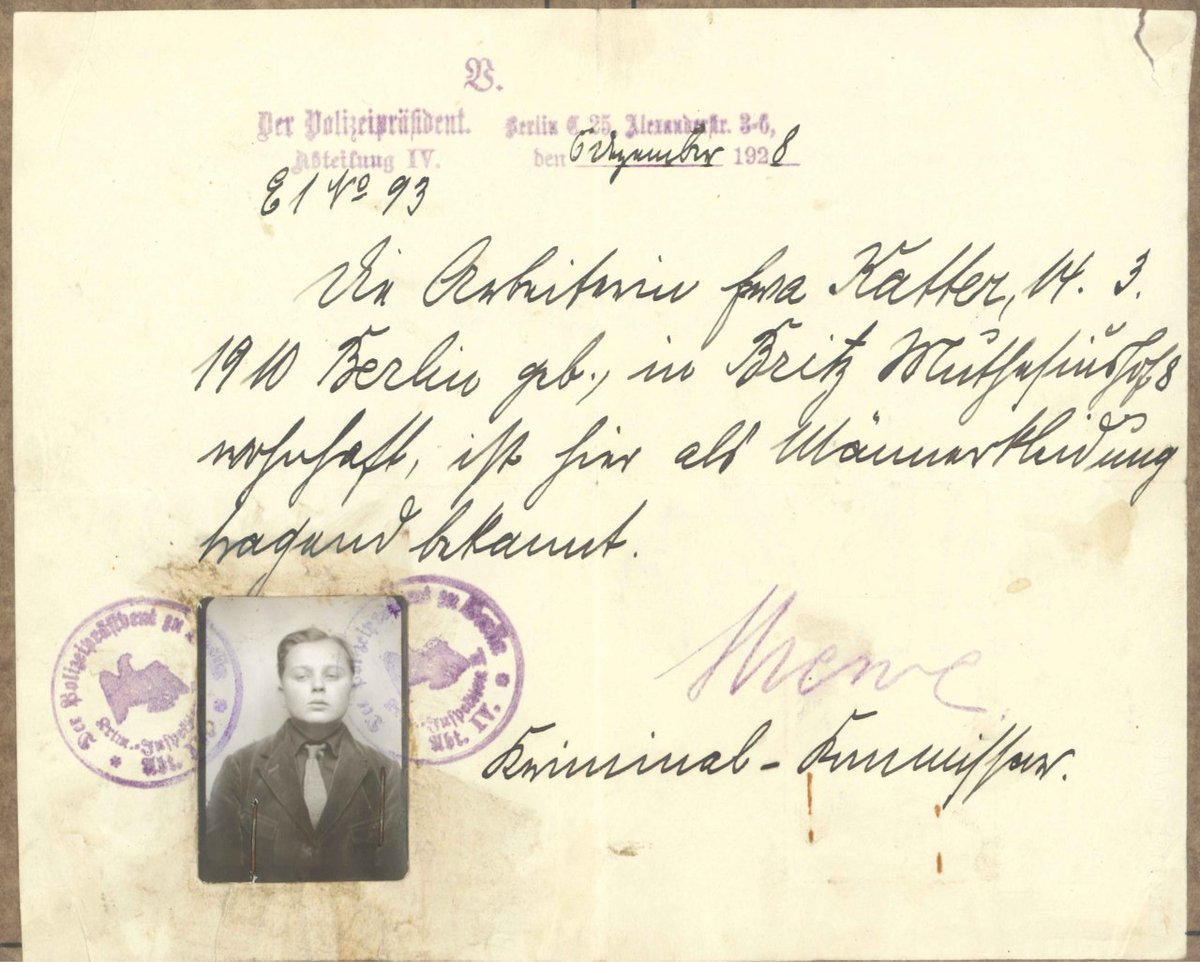 V.
Der Polizeipräsident.
Abteilung IV.
Berlin C. 25, Alexanderstr. 3-6,
den 6 Dezember 1928
E 1 No 93
Die Arbeiterin Eva Katter, 14. 3.
1910 Berlin geb., in Britz Muthesiushof 8
wohnhaft, ist hier als Männerkleidung
tragend bekannt.
Der Polizeipräsident zu
Krim.-Inspektion
Abt. IV.
Kriminal-Kommissar.